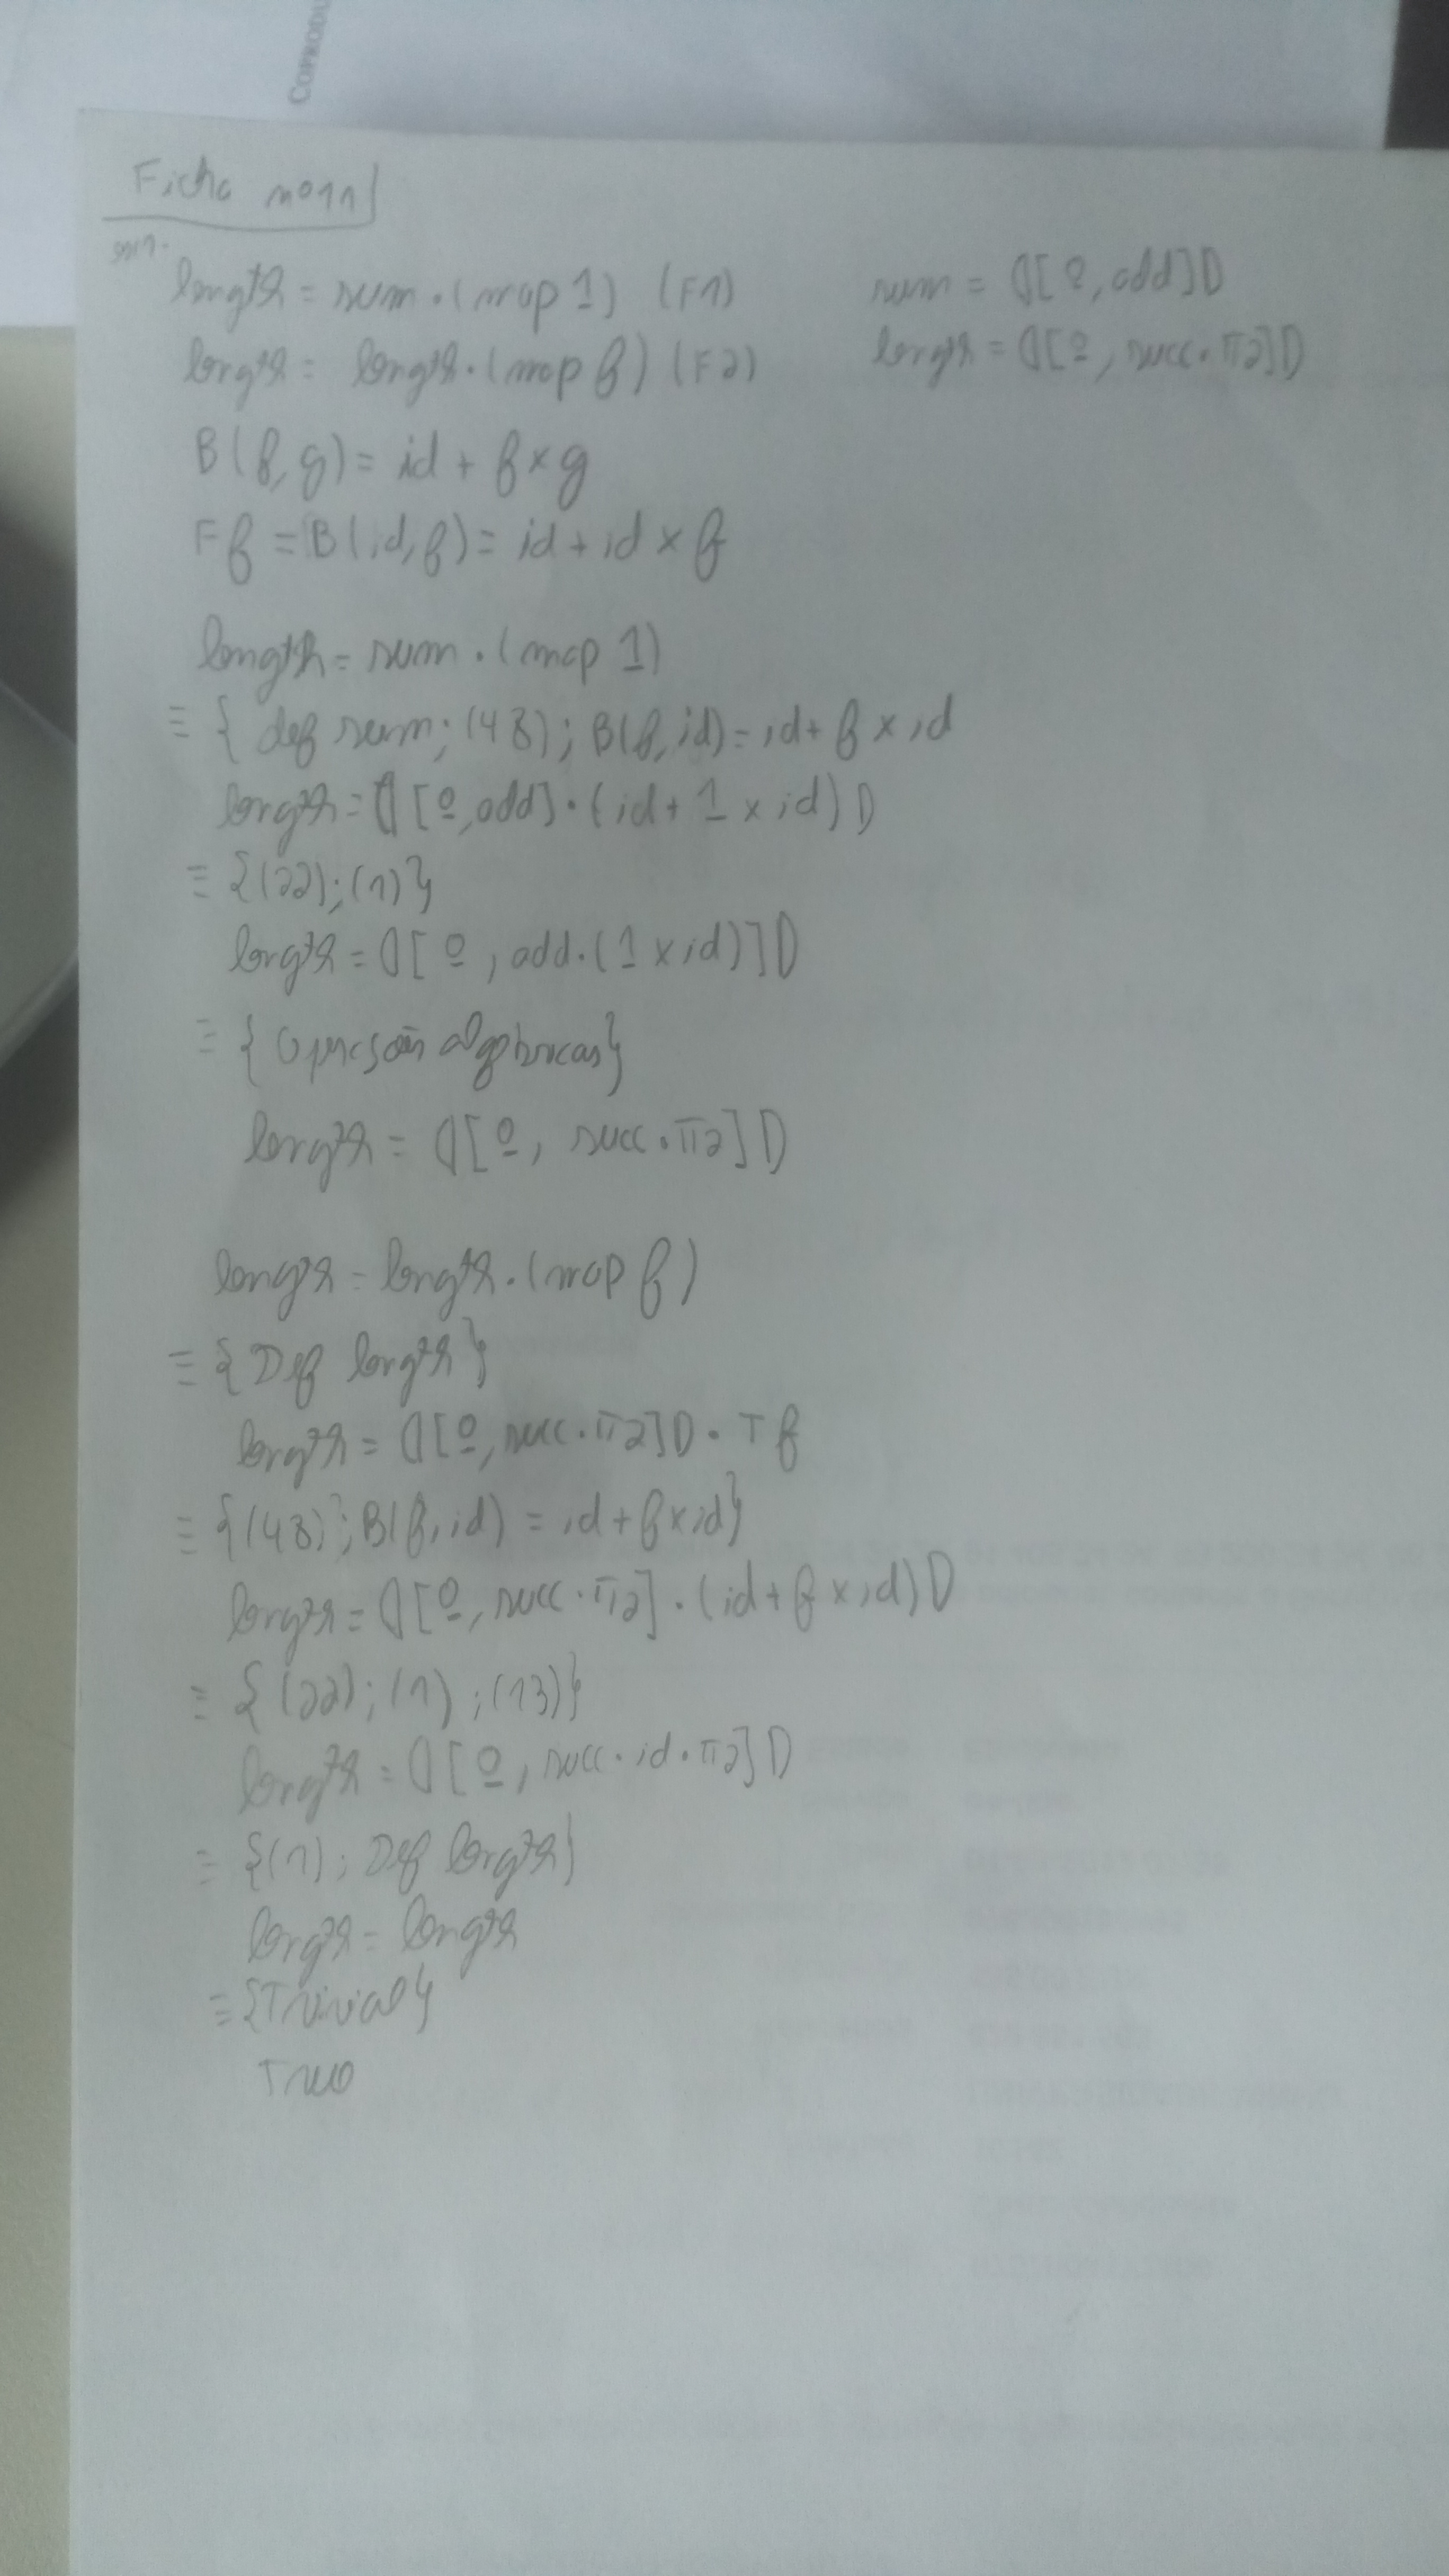 COPRODU
Ficha nº 11
length = sum · (map 1) (F1)
sum = ⦇[0, add]⦈
length = length · (map f) (F2)
length = ⦇[0, succ · π2]⦈
B(f, g) = id + f × g
F f = B(id, f) = id + id × f
length = sum · (map 1)
≡ { def sum; (48); B(f, id) = id + f × id
length = ⦇[0, add] · (id + 1 × id)⦈
≡ {(22); (1)}
length = ⦇[0, add · (1 × id)]⦈
≡ { algebricas}
length = ⦇[0, succ · π2]⦈
length = length · (map f)
≡ {Def length}
length = ⦇[0, succ · π2]⦈ · T f
≡ {(48); B(f, id) = id + f × id}
length = ⦇[0, succ · π2] · (id + f × id)⦈
≡ {(22); (1); (13)}
length = ⦇[0, succ · id · π2]⦈
≡ {(1); Def length}
length = length
≡ {Trivial}
True